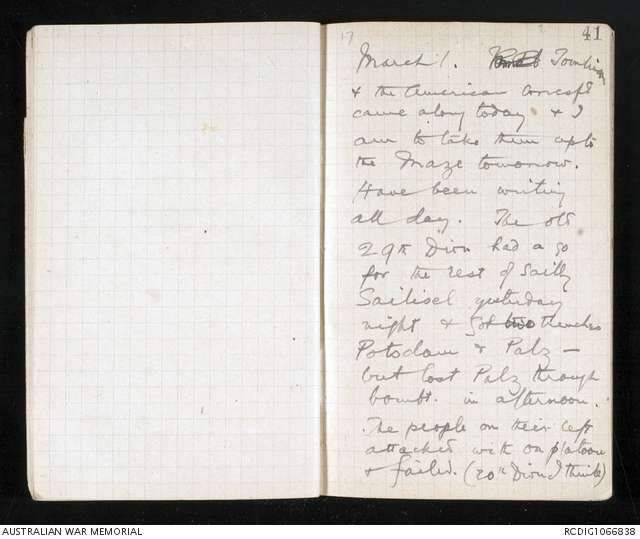 41
17
March 1. Tomlinson
& the American corresp^t
came along today & I
am to take them up to
the Maze tomorrow.
Have been writing
all day. The old
29th Divn had a go
for the rest of Sailly
Sailisel yesterday
night & got two trenches
Potsdam & Palz —
but lost Palz through
bombs. in afternoon.
The people on their left
attacked with one platoon
& failed. (20th Divn I think)
AUSTRALIAN WAR MEMORIAL
RCDIG1066838